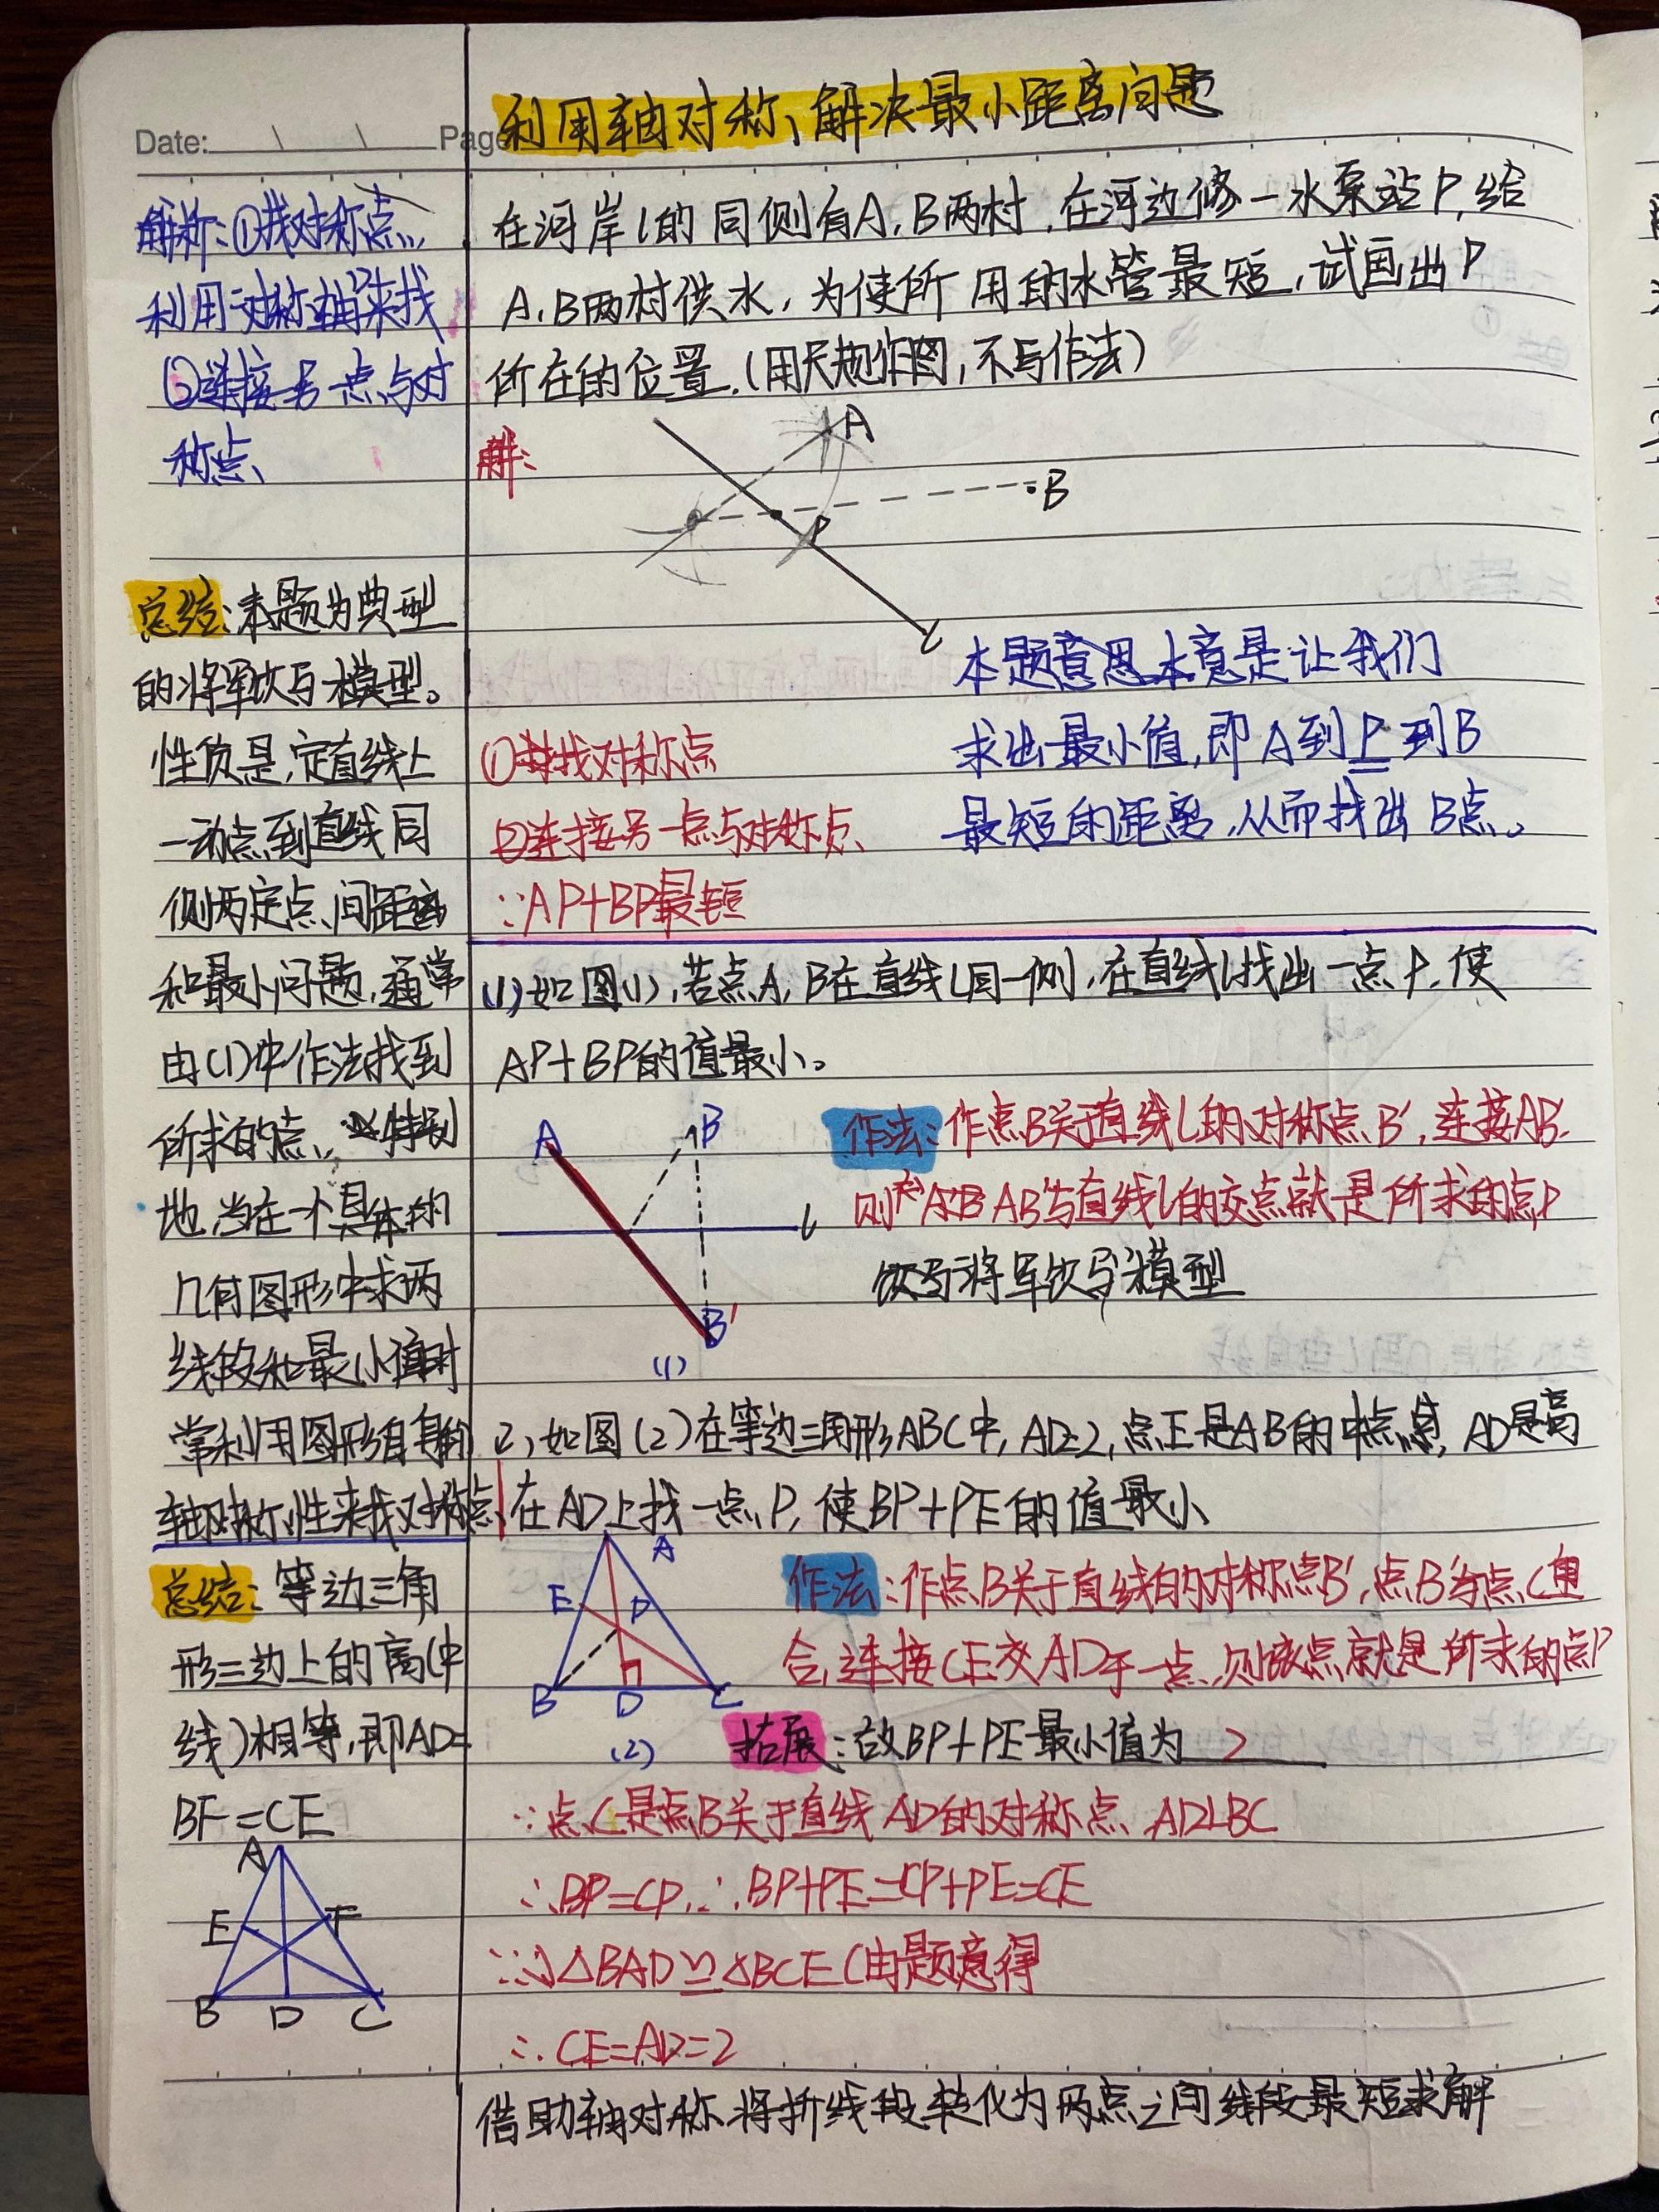 利用轴对称、解决最小距离问题
Date: Page
解析:①找对称点
利用对称轴来找
②连接另一点与对
称点、
总结:本题为典型
的将军饮马模型。
性质是,定直线上
一动点到直线同
侧两定点、间距离
和最小问题,通常
由(1)中作法找到
所求的点,特别
地,当在一个具体的
几何图形中求两
线段和最小值时
常利用图形自身的
轴对称性来找对称点
总结:等边三角
形三边上的高(中
线)相等,即AD=
BF=CE
A
E F
B D C
在河岸l的同侧有A,B两村,在河边修一水泵站P,给
A,B两村供水,为使所用的水管最短,试画出P
所在的位置.(用尺规作图,不写作法)
解:
A
B
P
l
本题意思本意是让我们
求出最小值,即A到P到B
最短的距离,从而找出B点。
①找对称点
②连接另一点与对称点、
∵AP+BP最短
(1)如图(1),若点A,B在直线l同一侧,在直线l找出一点P,使
AP+BP的值最小。
A B
l
B'
(1)
作法:作点B关于直线l的对称点B',连接AB'
则 AB'与直线l的交点就是所求的点P
将军饮马模型
2,如图(2)在等边三角形ABC中,AD=2,点E是AB的中点,AD是高
在AD上找一点P,使BP+PE的值最小
A
E P
B D C
(2)
作法:作点B关于直线的对称点B',点B'与点C重
合,连接CE交AD于一点,则该点就是所求的点P
拓展:故BP+PE最小值为 2
∵点C是点B关于直线AD的对称点、AD⊥BC
∴BP=CP,∴BP+PE=CP+PE=CE
△BAD≌△BCE(由题意得
∴CE=AD=2
借助轴对称,将折线段转化为两点之间线段最短求解